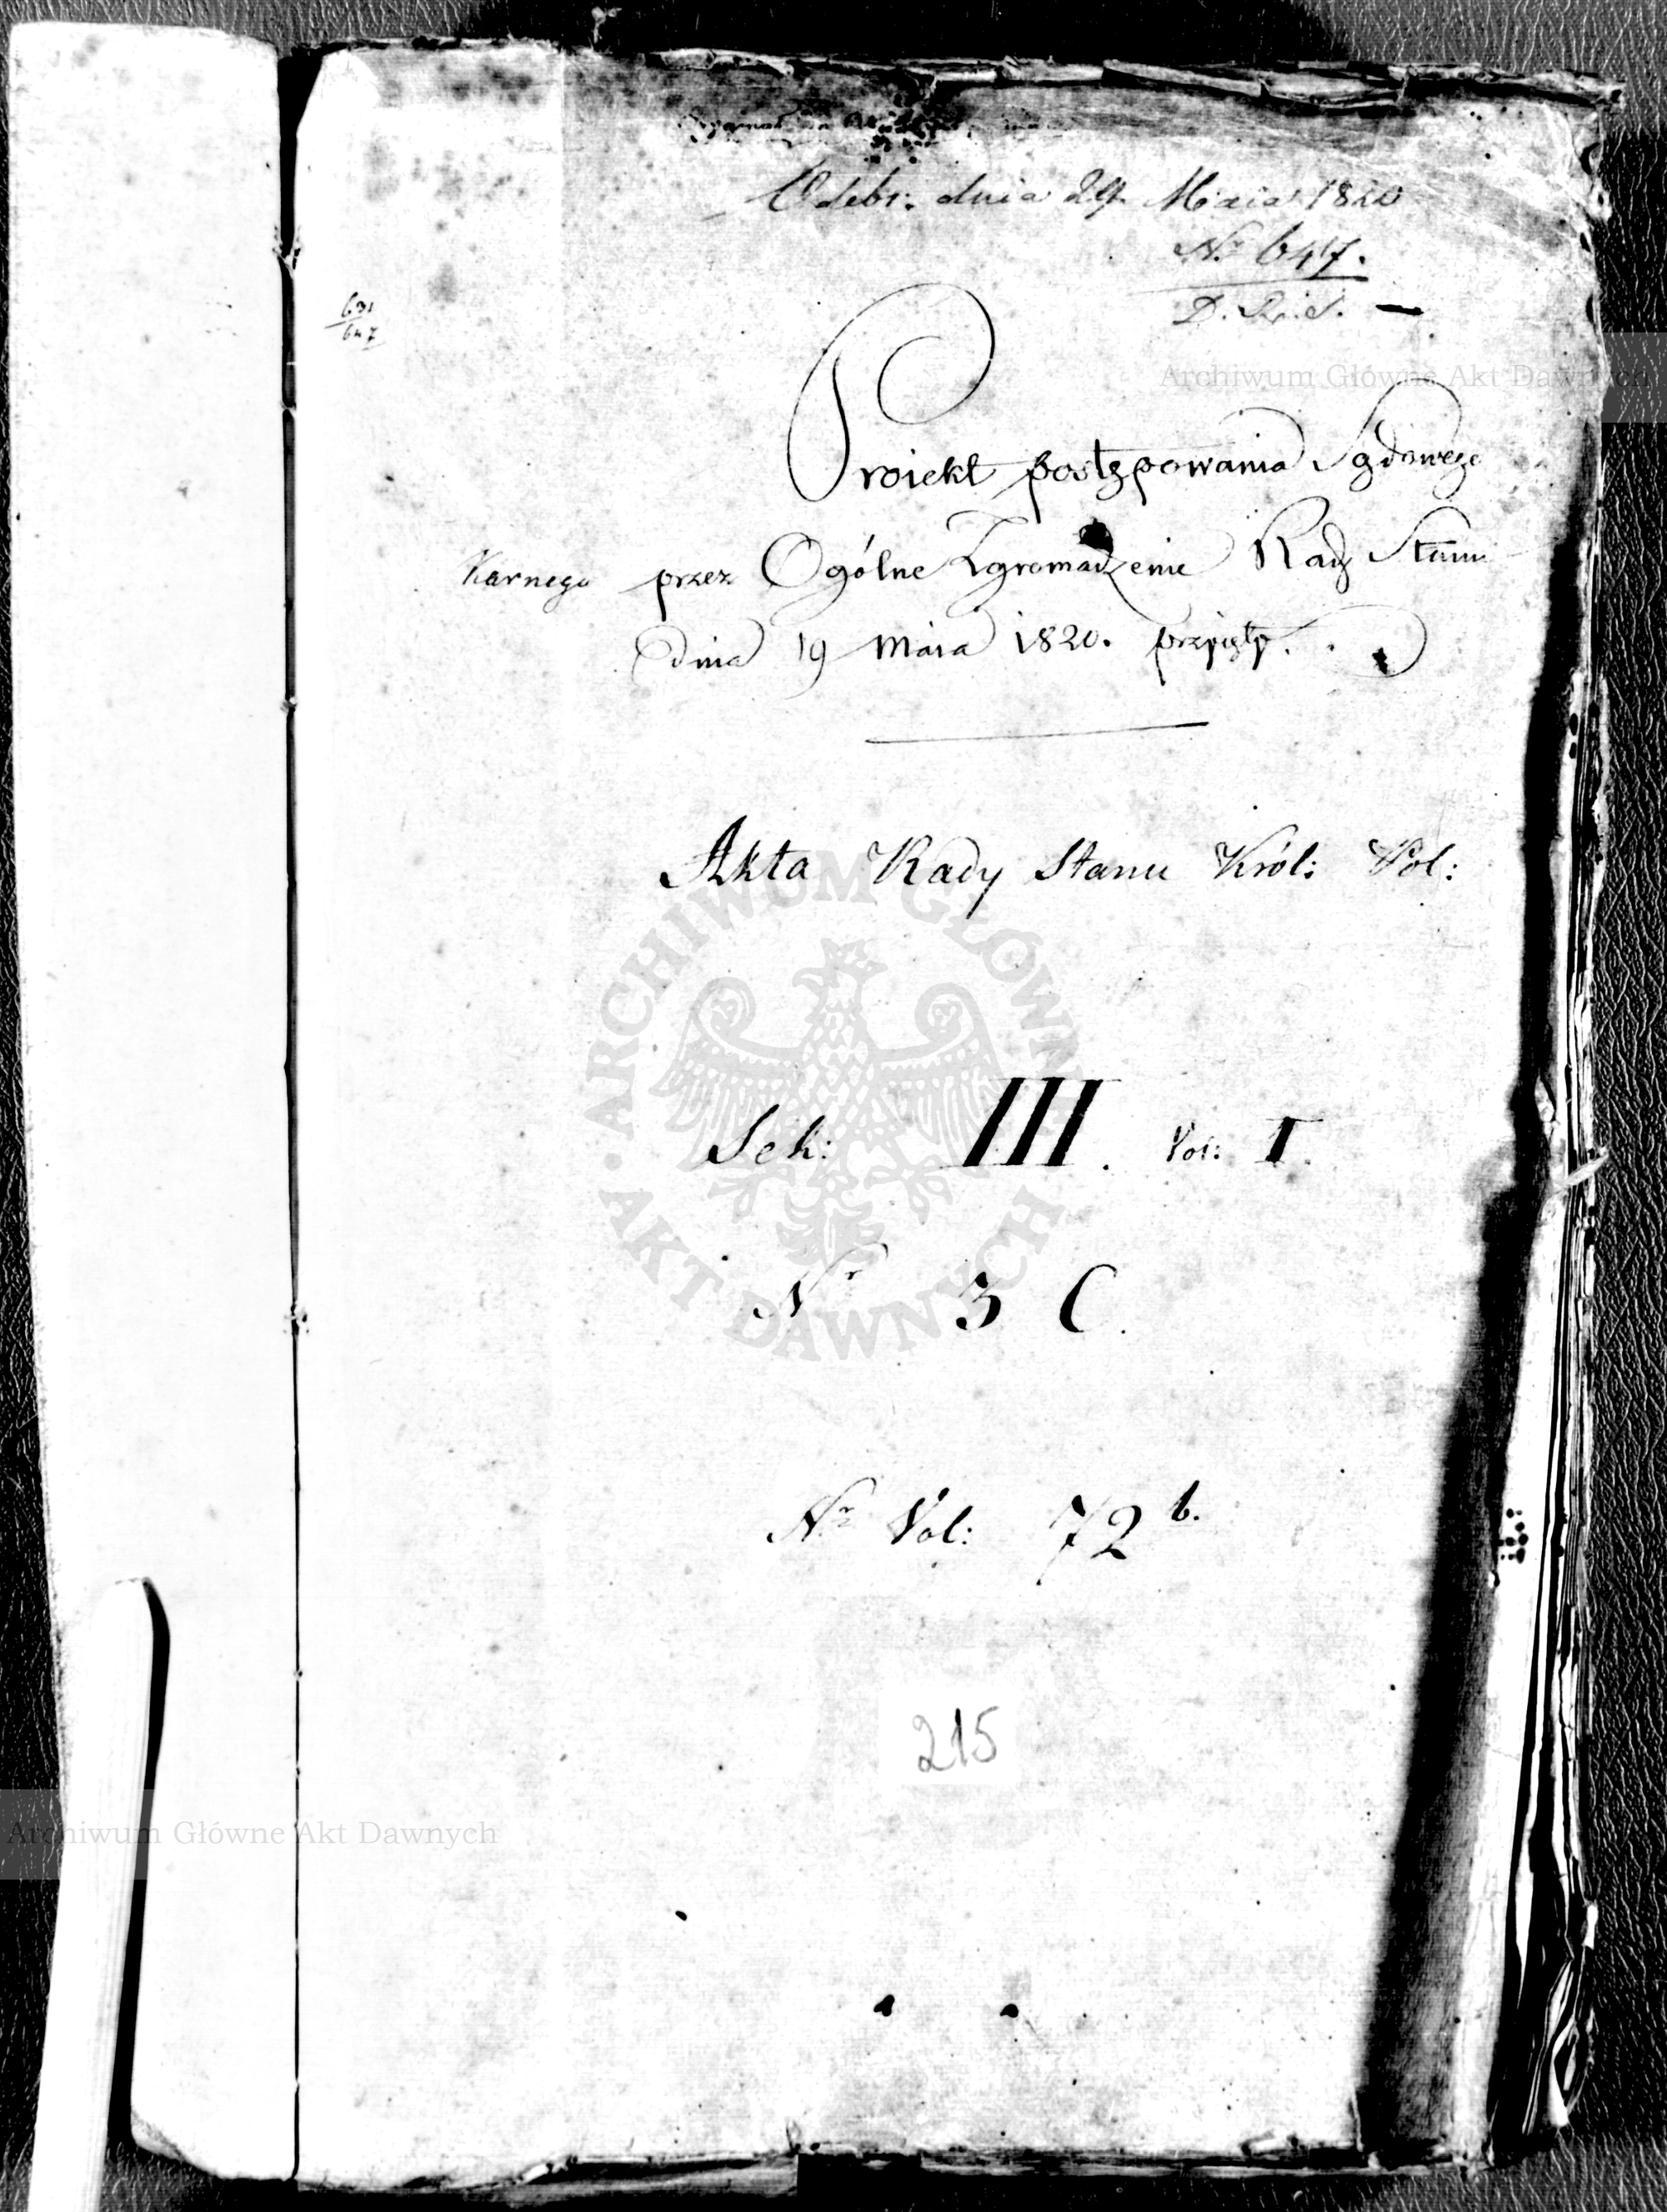 Odebr: dnia 29 Maia 1820
Nr 647.
D. R. S.
631
647
Proiekt postępowania Sądowego
Karnego przez Ogólne Zgromadzenie Rady Stanu
dnia 19 Maia 1820. przyięty.
Akta Rady Stanu Król: Pol:
Sek: III. Vol: I.
Nr 3 C.
Nr Vol: 72 b.
215
Archiwum Główne Akt Dawnych
ARCHIWUM GŁÓWNE · AKT DAWNYCH ·
Archiwum Główne Akt Dawnych